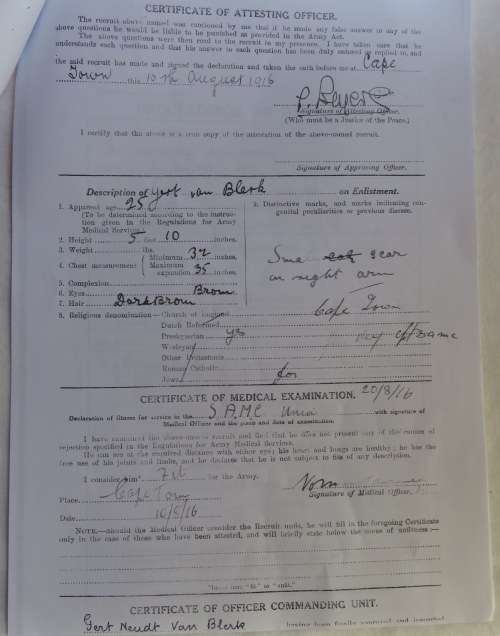 CERTIFICATE OF ATTESTING OFFICER.
The recruit above named was cautioned by me that if he made any false answer to any of the
above questions he would be liable to be punished as provided in the Army Act.
The above questions were then read to the recruit in my presence. I have taken care that he
understands each question and that his answer to each question has been duly entered as replied to, and
the said recruit has made and signed the declaration and taken the oath before me at Cape
Town this 10th August 1916
Signature of Attesting Officer.
(Who must be a Justice of the Peace.)
I certify that the above is a true copy of the attestation of the above-named recruit.
Signature of Approving Officer.
Description of Gert van Blerk on Enlistment.
1. Apparent age 25
(To be determined according to the instruc-
tion given in the Regulations for Army
Medical Services)
2. Height 5 feet 10 inches.
3. Weight lbs.
4. Chest measurement Minimum 32 inches.
Maximum
expansion 35 inches.
5. Complexion
6. Eyes Brown
7. Hair Dark Brown
Distinctive marks, and marks indicating con-
genital peculiarities or previous disease.
Small scar
on right arm
8. Religious denomination—Church of England
Cape Town
Dutch Reformed
Presbyterian yes
Wesleyan
Other Protestants
Roman Catholic
Jews for
CERTIFICATE OF MEDICAL EXAMINATION. 20/8/16
Declaration of fitness for service in the S.A.M.C. Union with signature of
Medical Officer and the place and date of examination.
I have examined the above-named recruit and find that he does not present any of the causes of
rejection specified in the Regulations for Army Medical Services.
He can see at the required distance with either eye; his heart and lungs are healthy; he has the
free use of his joints and limbs, and he declares that he is not subject to fits of any description.
I consider him* Fit for the Army.
Place Cape Town
Signature of Medical Officer.
Date 10/8/16
NOTE.—Should the Medical Officer consider the Recruit unfit, he will fill in the foregoing Certificate
only in the case of those who have been attested, and will briefly state below the cause of unfitness:—
*Insert here "fit" or "unfit."
CERTIFICATE OF OFFICER COMMANDING UNIT.
Gert Neudt Van Blerk having been finally approved and inspected